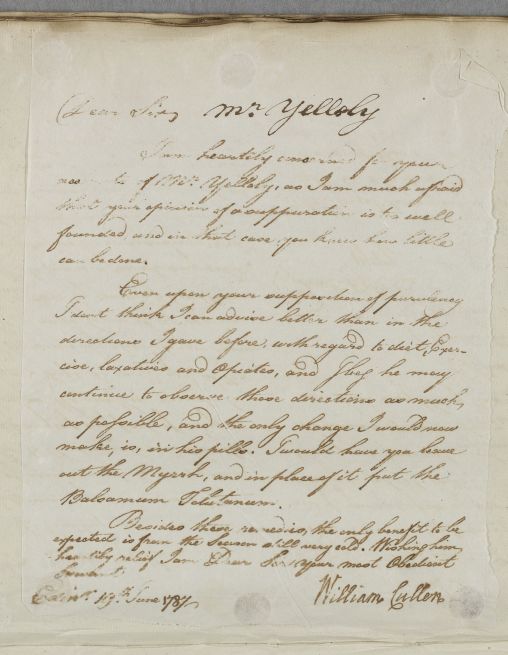 Dear Sir, Mr. Yelloly
I am heartily concerned for your
account of Mr. Yelloly, as I am much afraid
that your opinion of a suppuration is too well
founded and in that case you know how little
can be done.
Even upon your supposition of purulency
I dont think I can advise better than in the
directions I gave before, with regard to diet, Exer-
cise, laxatives and Opiates, and I beg he may
continue to observe these directions as much,
as possible, and the only change I would now
make, is, in his pills. I would have you leave
out the Myrrh, and in place of it put the
Balsamum Tolutanum.
Besides these remedies, the only benefit to be
expected is from the Season still very cold. Wishing him
heartily relief I am Dear Sir Your most Obedient
Servant
William Cullen
Edinr. 19th. June